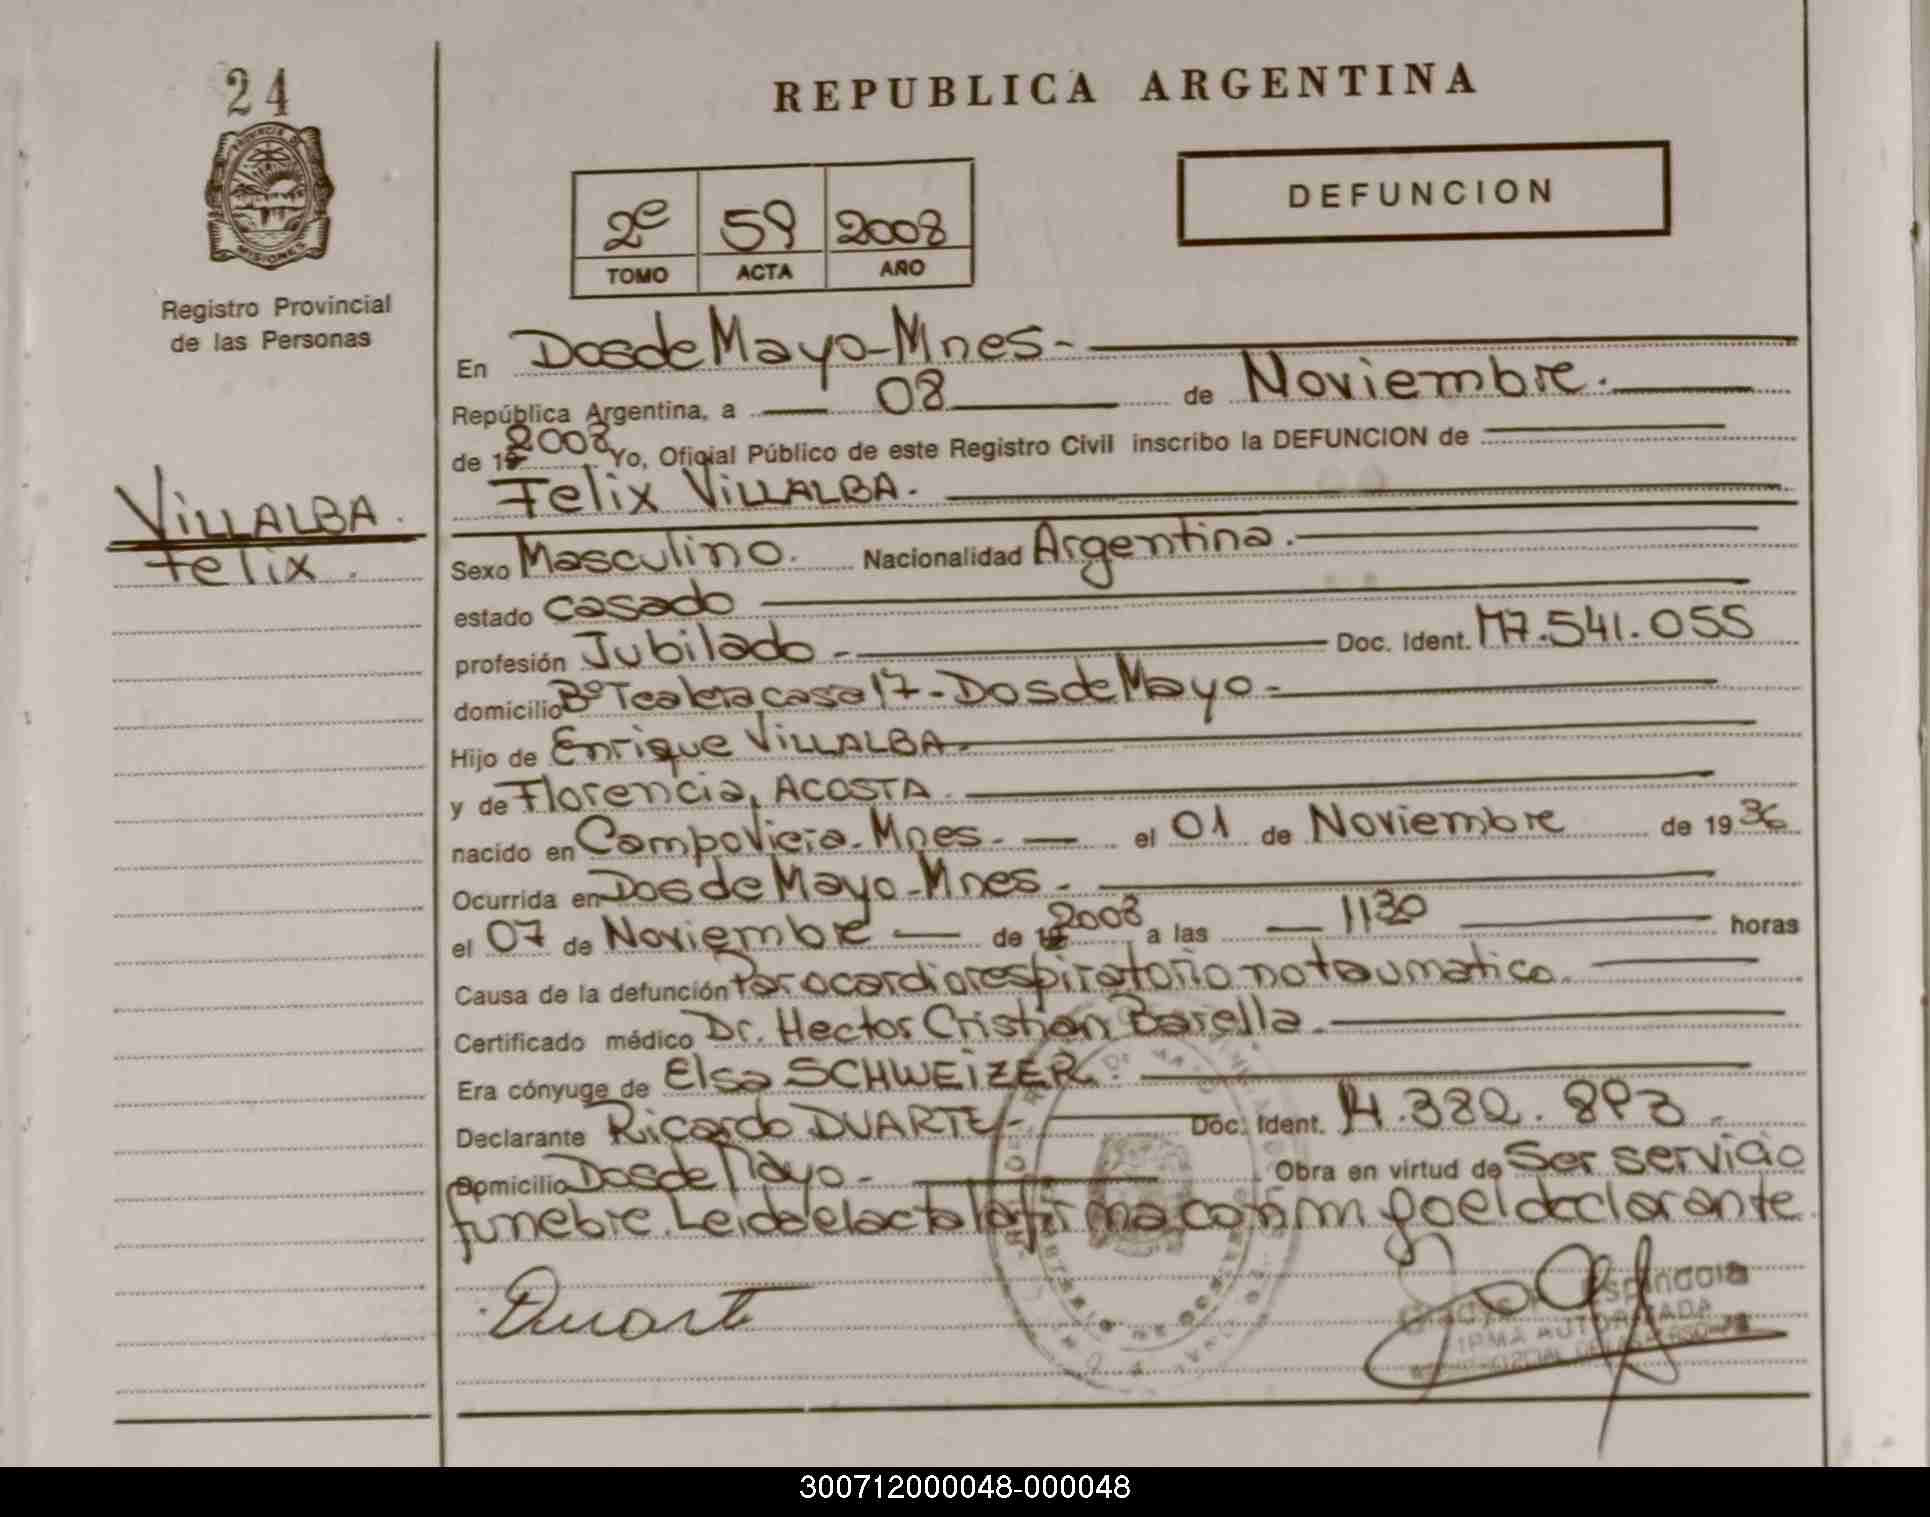 24
REPUBLICA ARGENTINA
PROVINCIA DE
MISIONES
Registro Provincial
de las Personas
2º 59 2008
TOMO ACTA AÑO
DEFUNCION
En Dos de Mayo - Mnes -
República Argentina, a 08 de Noviembre.
de 19 2008 Yo, Oficial Público de este Registro Civil inscribo la DEFUNCION de
Felix VILLALBA.
VILLALBA.
Felix.
Sexo Masculino. Nacionalidad Argentina.
estado casado
profesión Jubilado - Doc. Ident. M7.541.055
domicilio Bº Tealera casa 17 - Dos de Mayo -
Hijo de Enrique VILLALBA.
y de Florencia, ACOSTA.
nacido en Campo Vieria - Mnes. el 01 de Noviembre de 1936
Ocurrida en Dos de Mayo - Mnes -
el 07 de Noviembre de 19 2008 a las 1130 horas
Causa de la defunción Parocardiorespiratorio no taumatico.
Certificado médico Dr. Hector Cristian Barella.
Era cónyuge de Elsa SCHWEIZER.
Declarante Ricardo DUARTE - Doc. Ident. 14.382.893
Domicilio Dos de Mayo - Obra en virtud de Ser servicio
funebre. Leida el acta la firma con m go el declarante
Duarte
Espindola
FIRMA AUTORIZADA
300712000048-000048